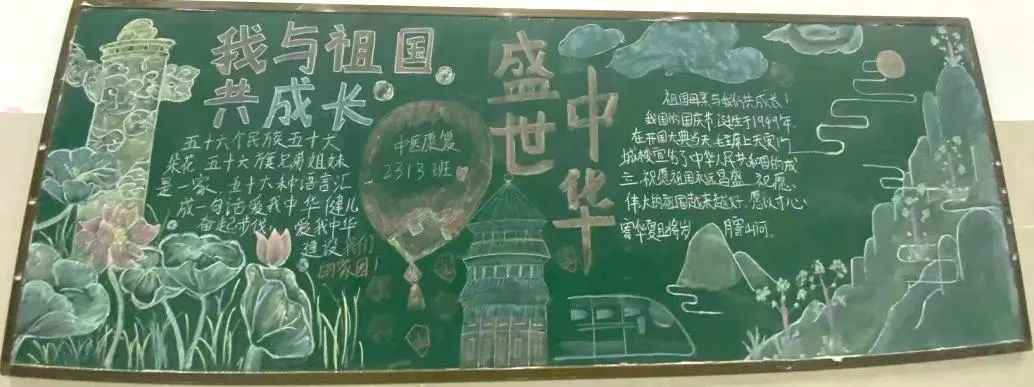 我与祖国
共成长
五十六个民族五十六
朵花，五十六族兄弟姐妹
是一家，五十六种语言汇
成一句话爱我中华健儿
奋起步伐，爱我中华
建设我们
的家园！
中医康复
2313班
盛世
中华
祖国母亲与我们共成长！
我国的国庆节诞生于1949年.
在开国大典当天，毛主席上天安门
城楼宣告了中华人民共和国的成
立，祝愿祖国永远昌盛，祝愿
伟大的祖国越来越好，愿以寸心
寄华夏且将岁 月 山河.